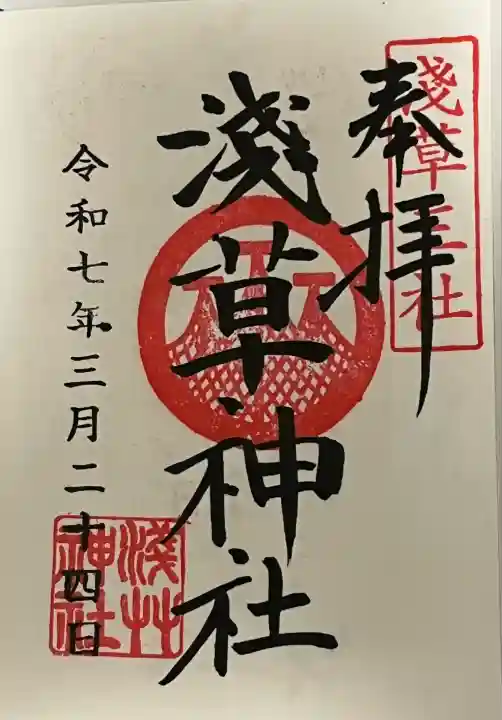 淺草三社
奉拝
淺草神社
淺草
神社
令和七年三月二十四日